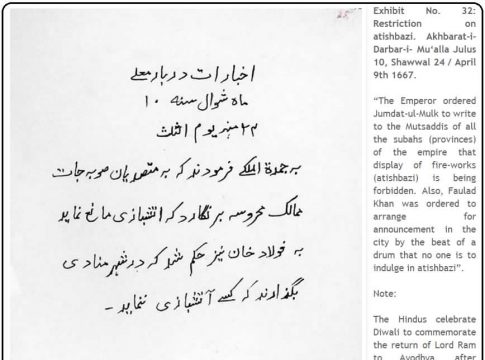 اخبارات دربار معلے
ماه شوال سنه ۱۰
۲۴ شهر یوم الثلث
به جمدة الملکے فرمودند که به متصدیان صوبه جات
ممالک محروسه بر نگارد که اتشبازی مانع نماید
به فولاد خان نیز حکم شد که در شهر منادی
بگذارند که کسے آتشبازی ننماید -
Exhibit No. 32:
Restriction on
atishbazi. Akhbarat-i-
Darbar-i- Mu‘alla Julus
10, Shawwal 24 / April
9th 1667.
“The Emperor ordered
Jumdat-ul-Mulk to write
to the Mutsaddis of all
the subahs (provinces)
of the empire that
display of fire-works
(atishbazi) is being
forbidden. Also, Faulad
Khan was ordered to
arrange for
announcement in the
city by the beat of a
drum that no one is to
indulge in atishbazi”.
Note:
The Hindus celebrate
Diwali to commemorate
the return of Lord Ram
to Ayodhya after